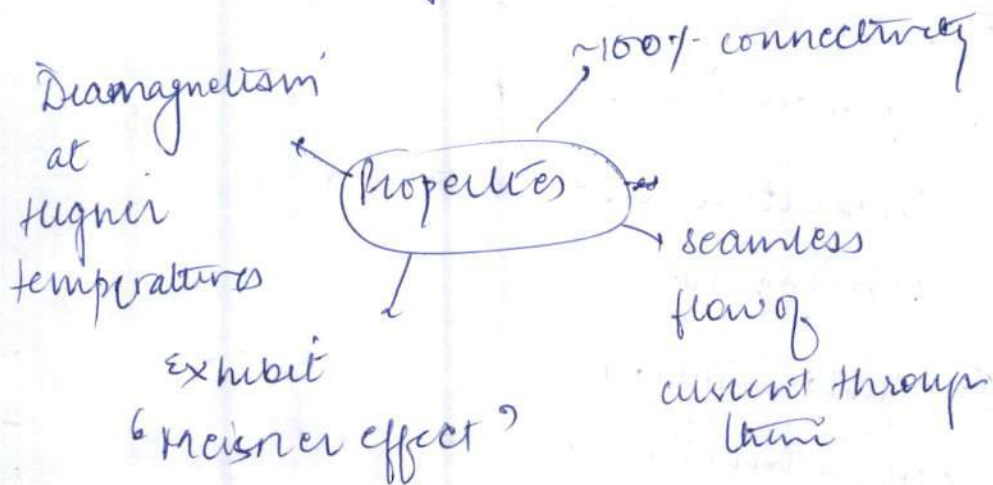 ~100% connectivity
Diamagnetism
at
Higher
temperatures
Properties
seamless
flow of
current through
them
Exhibit
'Meisner effect'